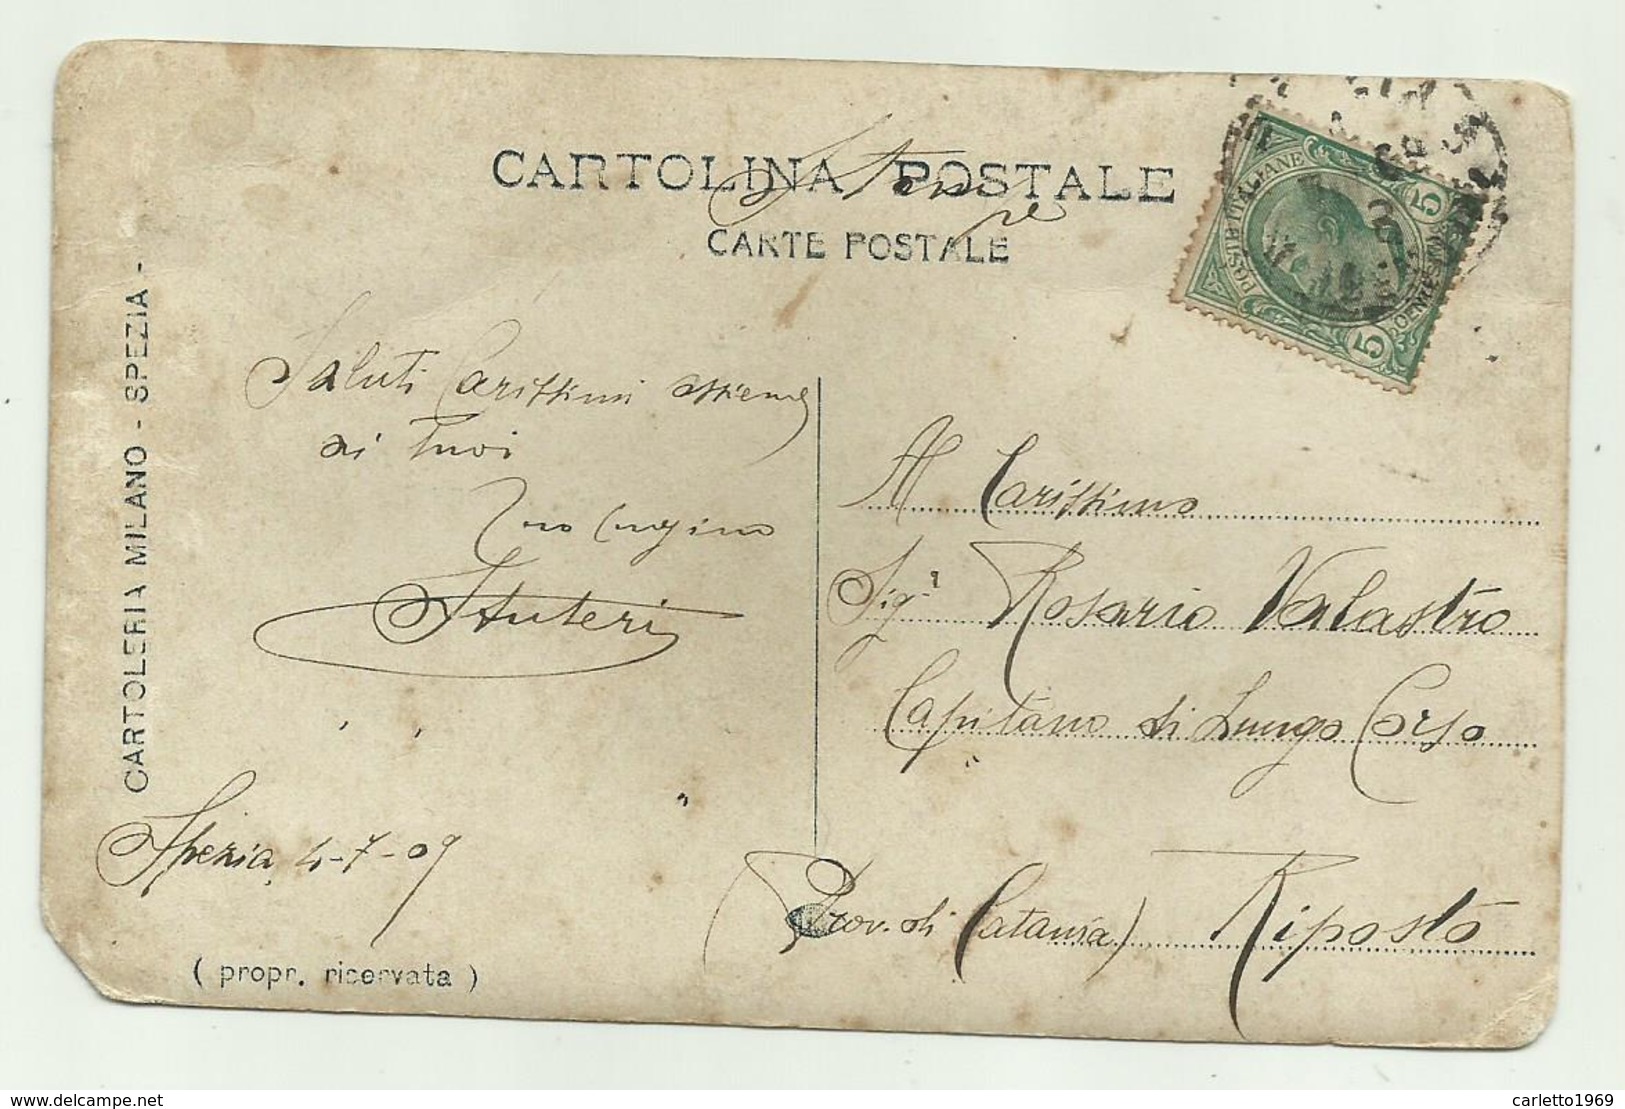 CARTOLINA POSTALE
Stampe
CARTE POSTALE
CARTOLERIA MILANO - SPEZIA -
POSTE ITALIANE
5
5
CENTESIMI
Saluti Carissimi assieme
ai tuoi
Tuo Cugino
Sauteri
Spezia, 4-7-09
( propr. riservata )
Al Carissimo
Sig.r Rosario Valastro
Capitano di Lungo Corso
(Prov. di Catania) Riposto
www.delcampe.net
carletto1969